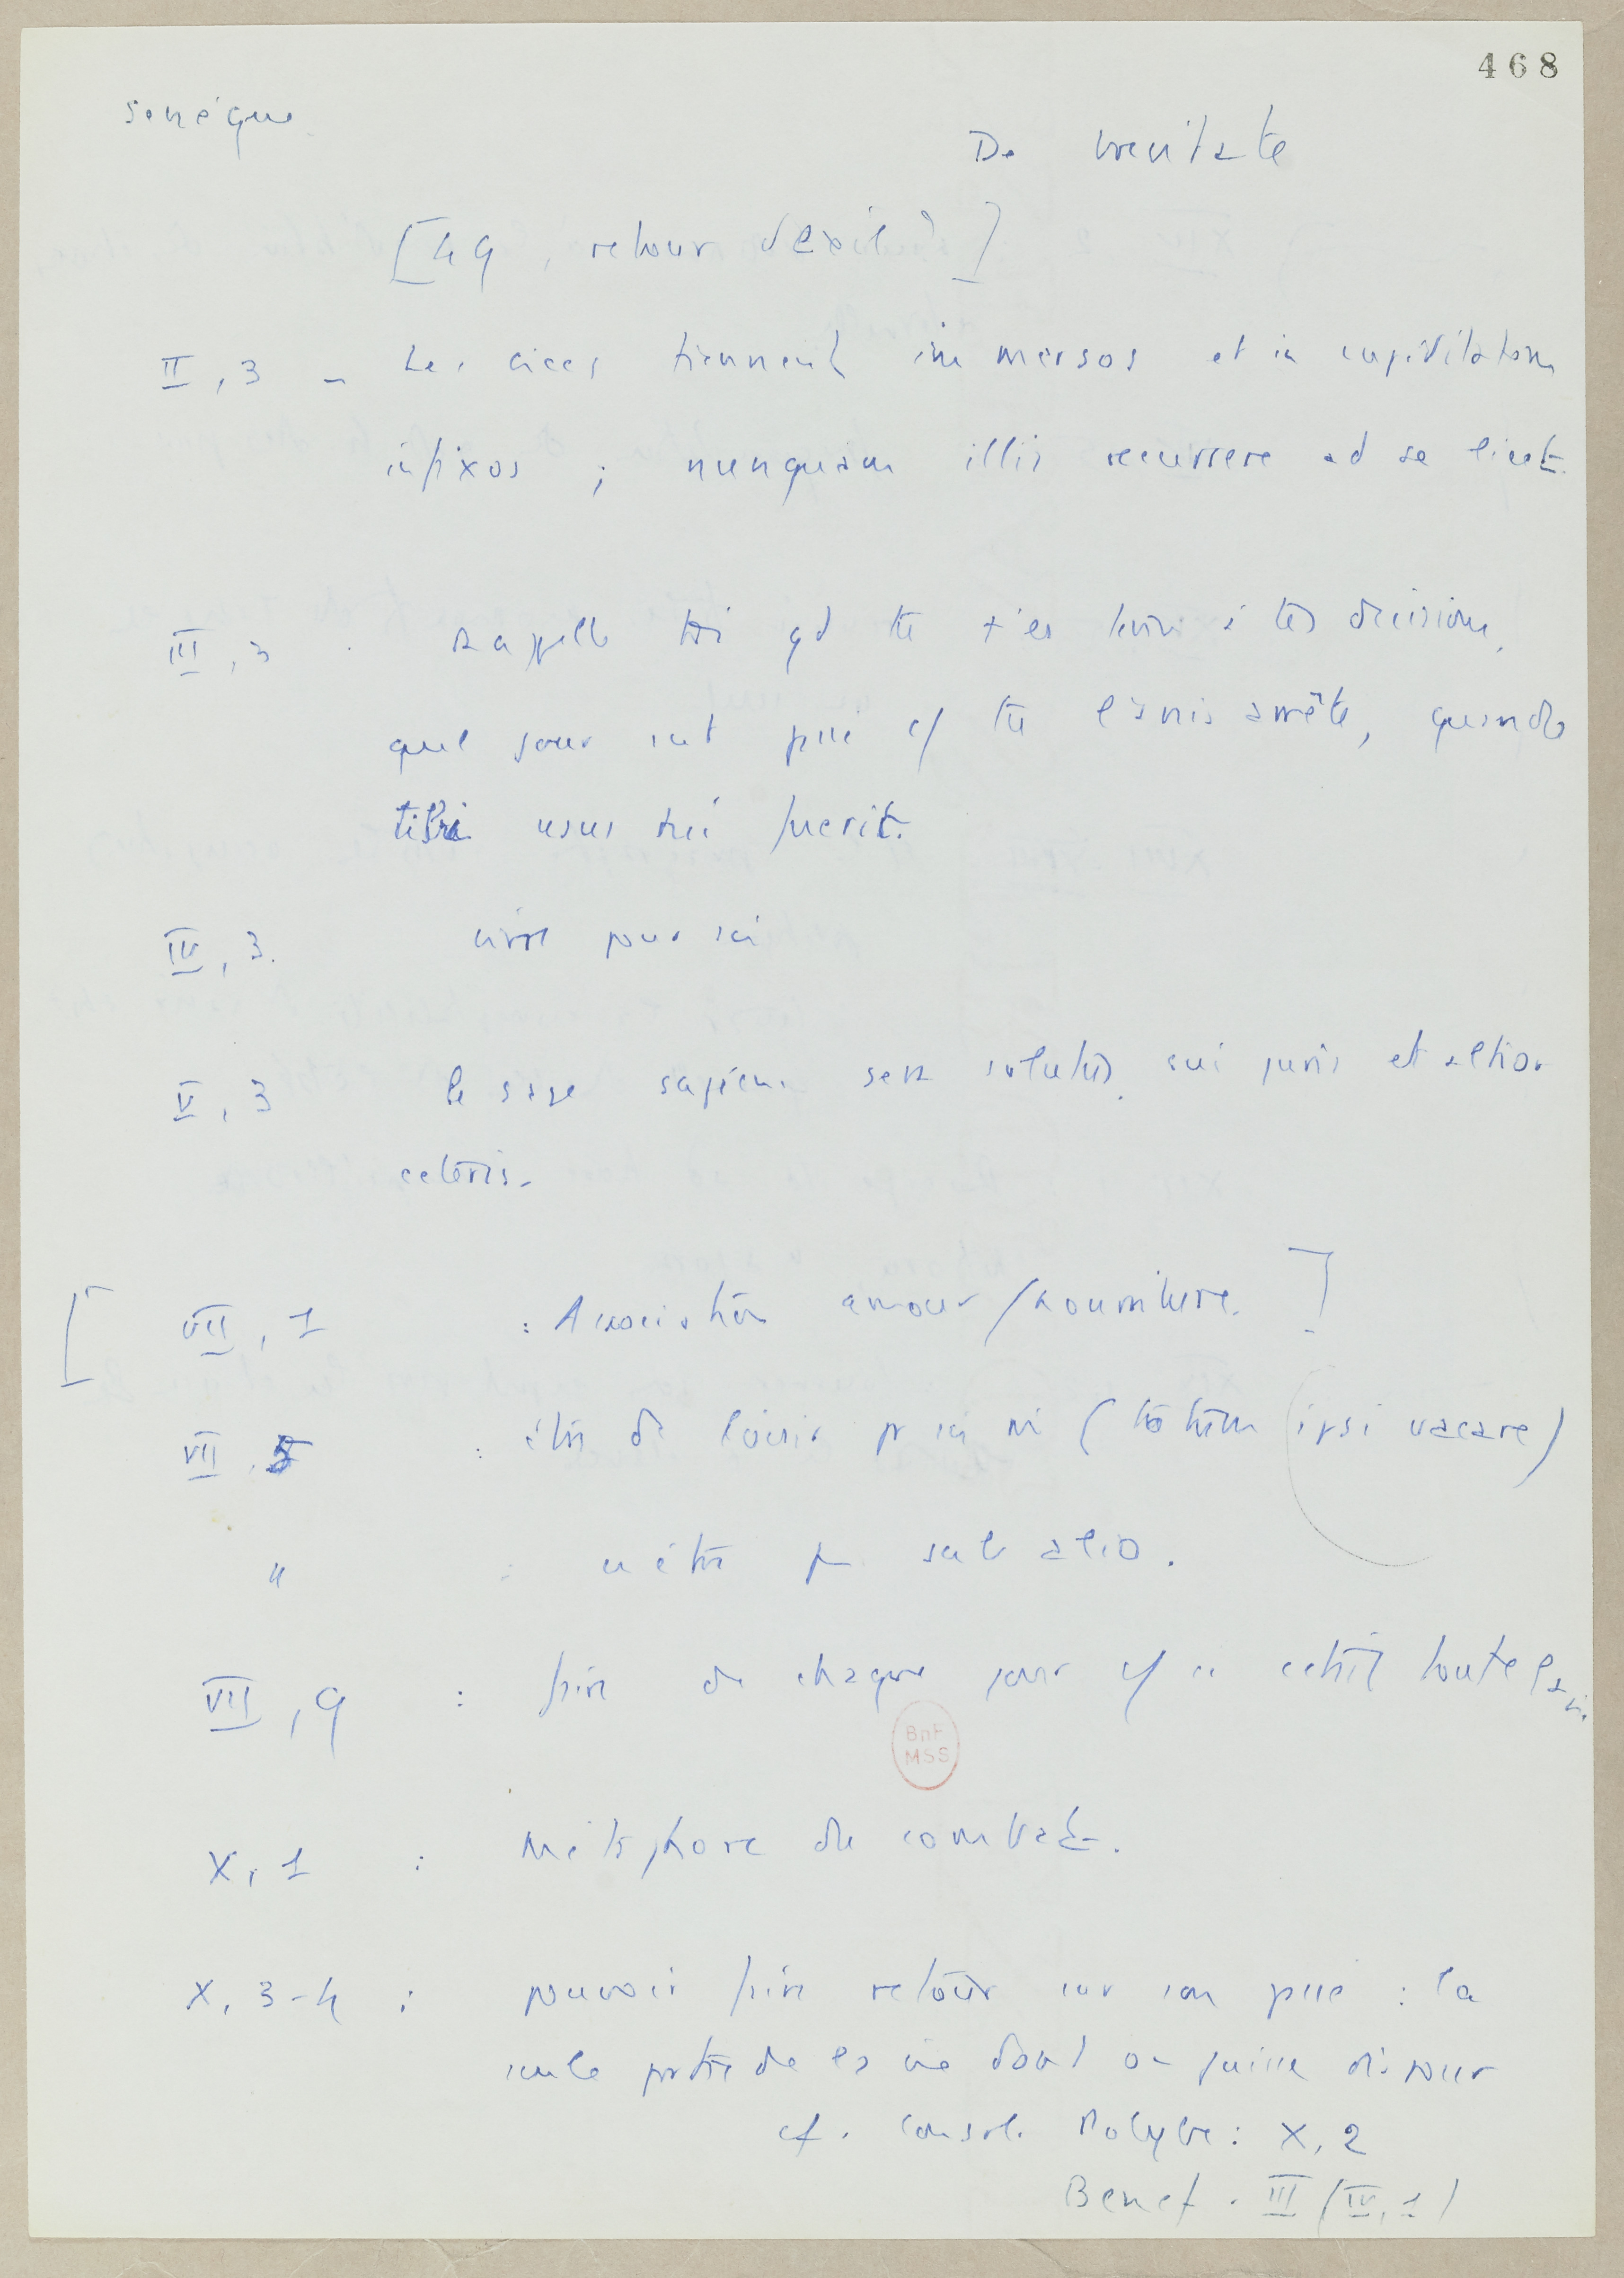 468
Sénèque
De brevitate
[49, retour d'exil ?]
II, 3 - Les vices tiennent immersos et in cupiditatem
infixos ; nunquam illis recurrere ad se licet.
III, 3 . Rappelle toi qd tu t'es tenu à tes décisions,
quel jour s'est passé c/ tu l'avais arrêté, quando
tibi usus tui fuerit.
IV, 3. vivre pour soi
V, 3 le sage sapiens sera solutus, sui juris et altior
ceteris.
[ VII, 1 : Association amour/nourriture. ]
VII, 5 : être de loisir pr soi m (totum ipsi vacare)
" : n'être pas sub alio.
VII, 9 : faire de chaque jour c/ si c'était toute la vie.
X, 1 : Métaphore du combat.
X, 3-4 : pouvoir faire retour sur son passé : la
seule partie de la vie dont on puisse disposer
cf. Consol. Polybe : X, 2
Benef. III (IV, 1)
BnF
MSS